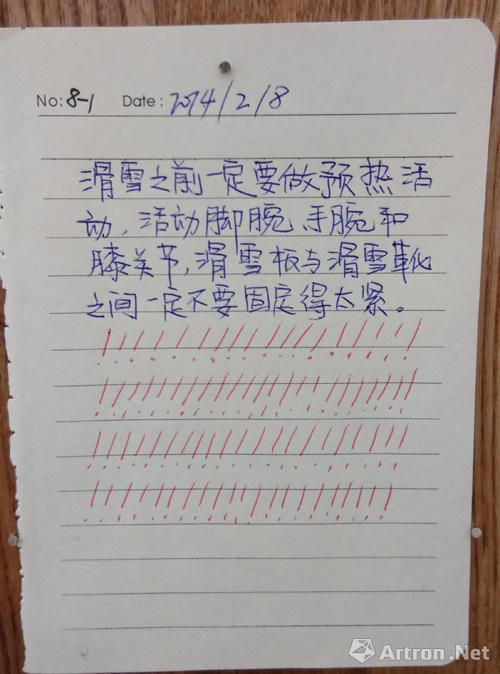 No: 8-1 Date: 2014/2/8
滑雪之前一定要做预热活
动，活动脚腕、手腕和
膝关节，滑雪板与滑雪靴
之间一定不要固定得太紧。
!!!!!!!!!!!!!!!!!!!!
!!!!!!!!!!!!!!!!!!!!!!!
!!!!!!!!!!!!!!!!!!!!!!
!!!!!!!!!!!!!!!!!!!!!!
Artron.Net